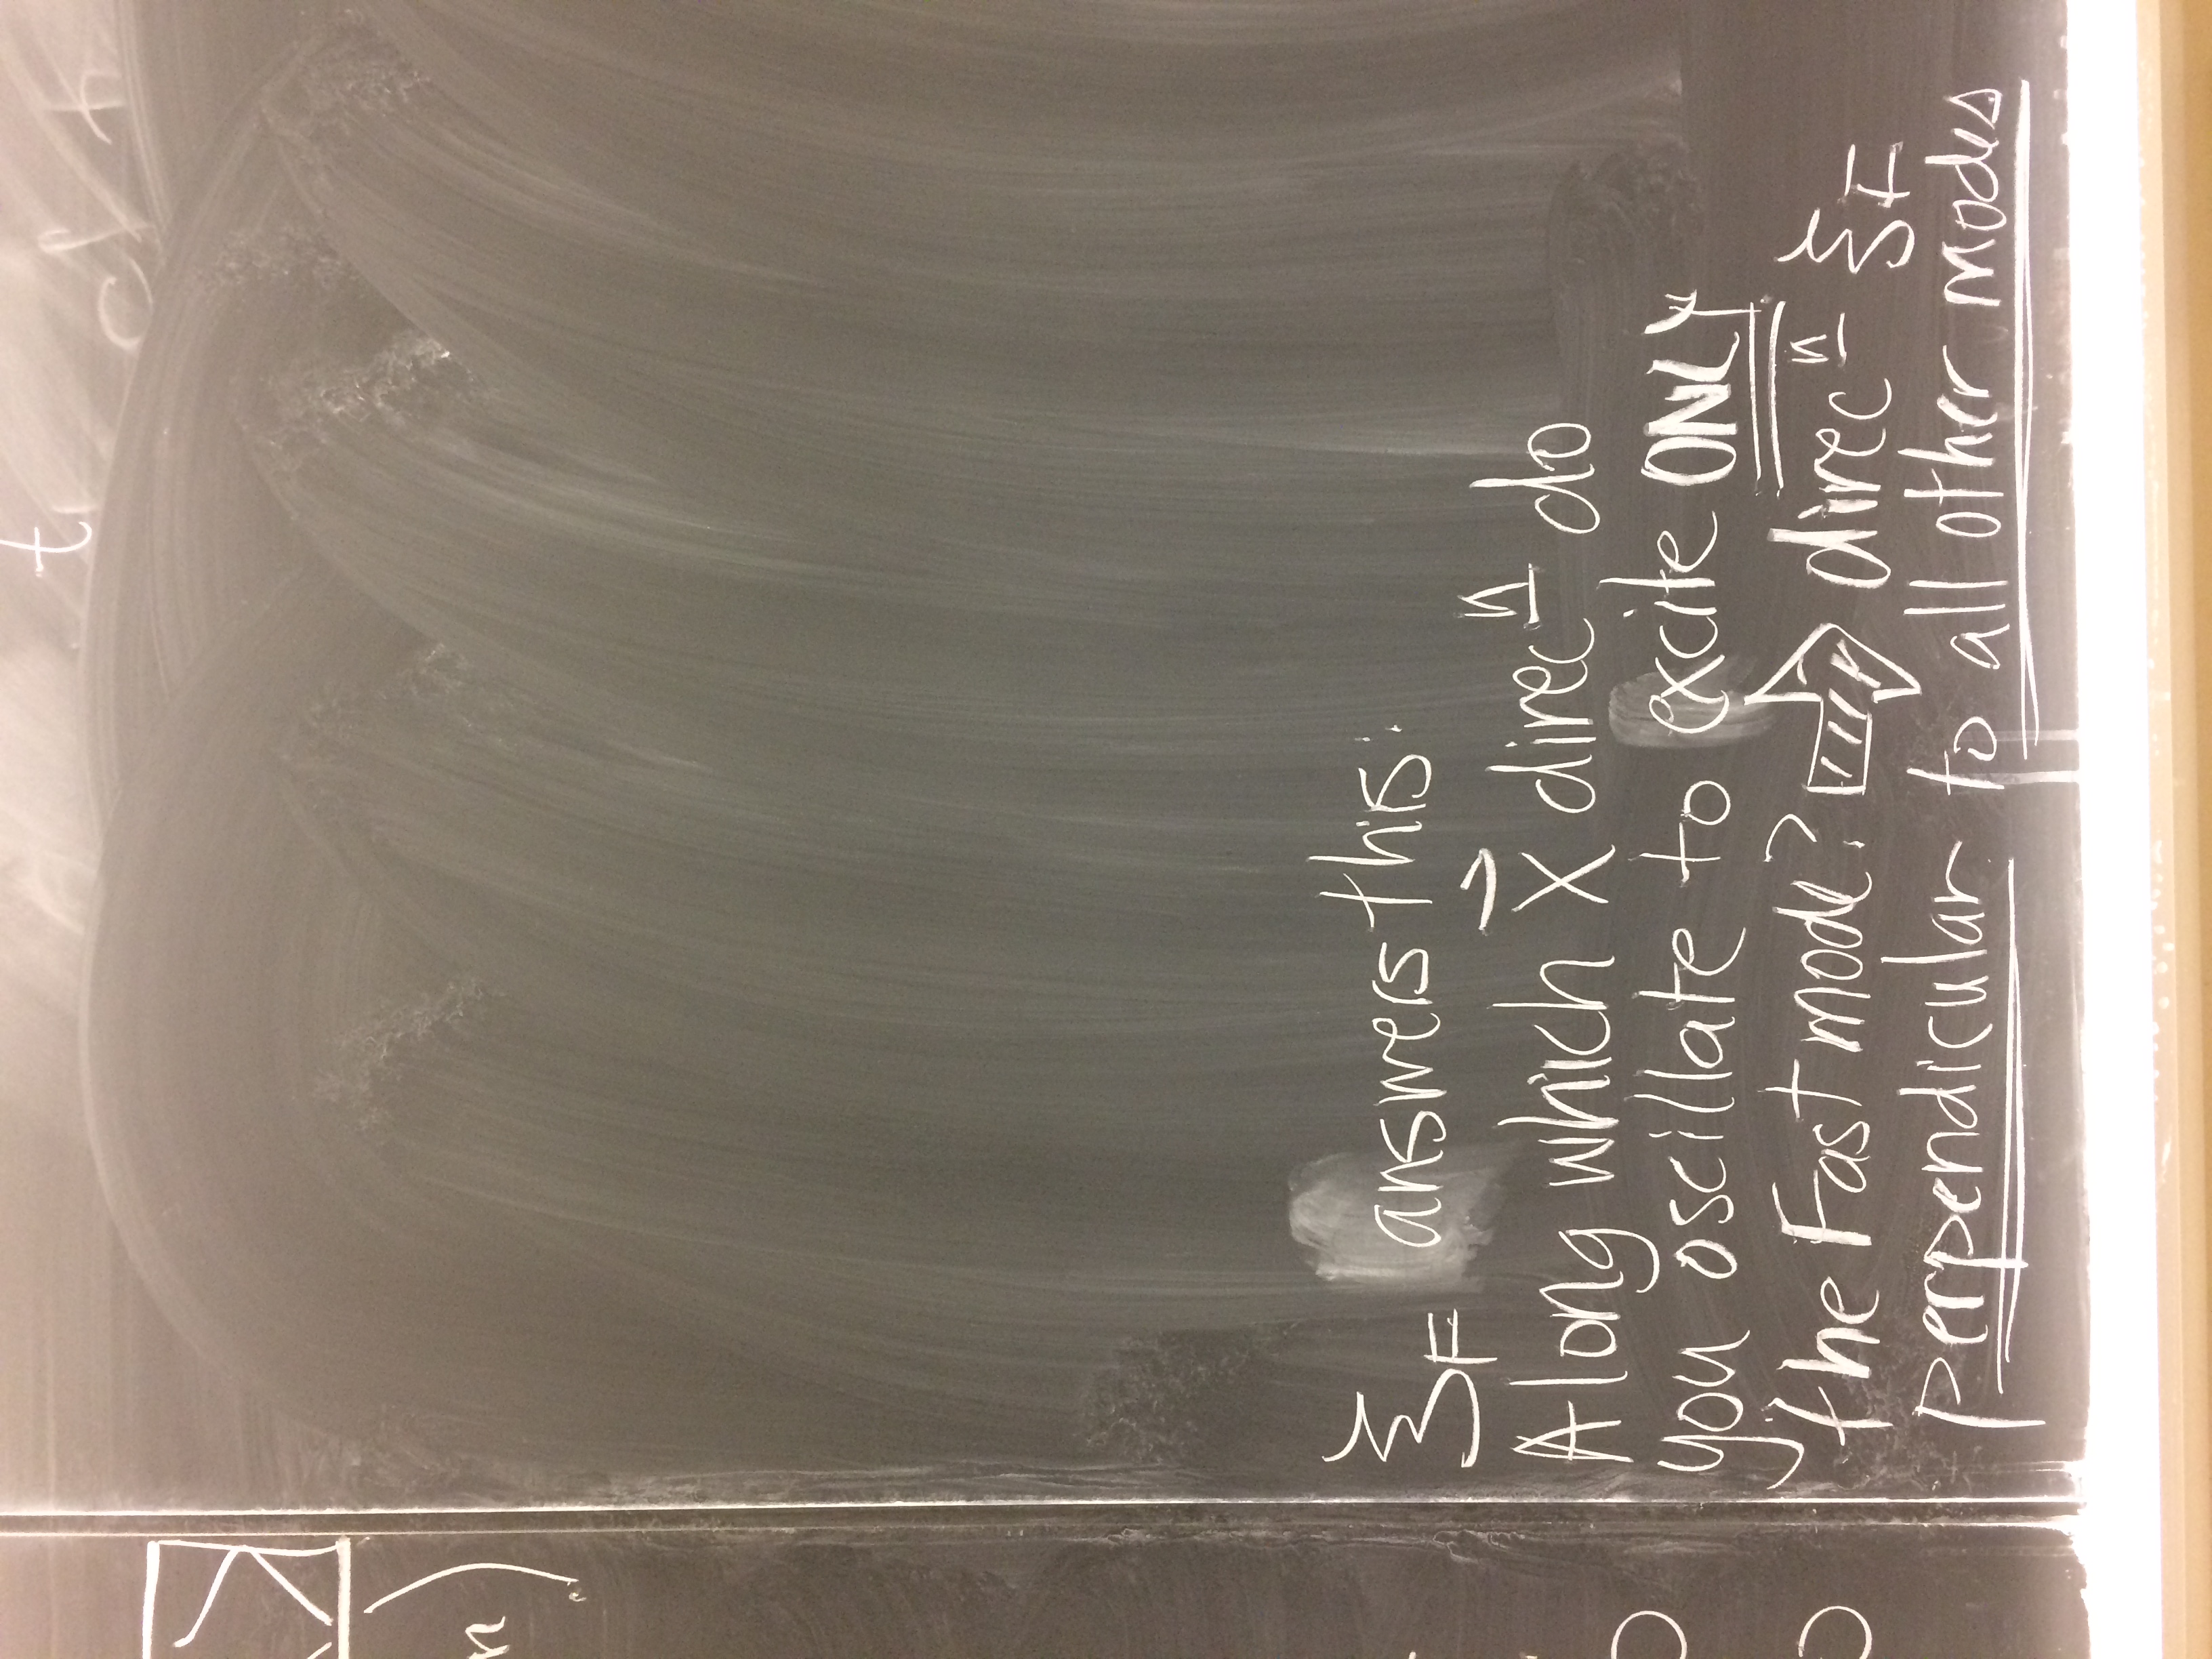 ξF answers this:
Along which x⃗ direcⁿ do
you oscillate to excite ONLY
the Fast mode? ⇨ direcⁿ ξF
perpendicular to all other modes